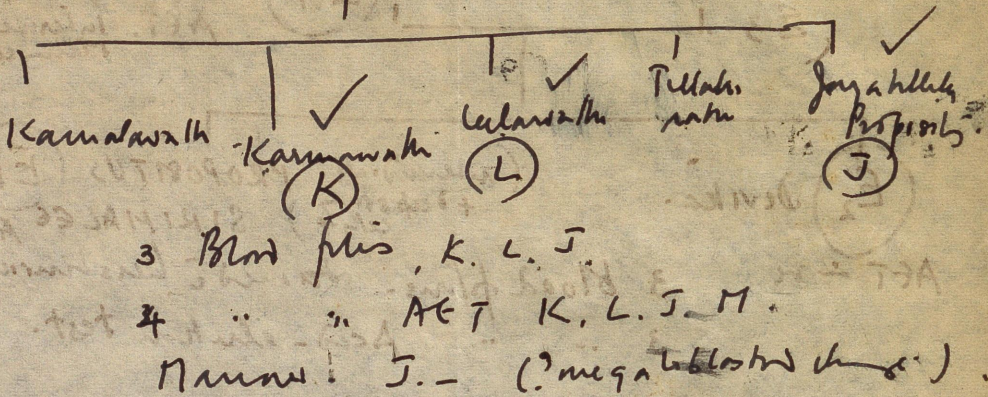 Kamalawathi Karunawathi Leelawathi Tillake ratne Jayatilleke Propositus.
K L J
3 Blood films, K. L. J.
4 " " AET K. L. J. M.
Marrow: J. – (? megaloblastoid change).